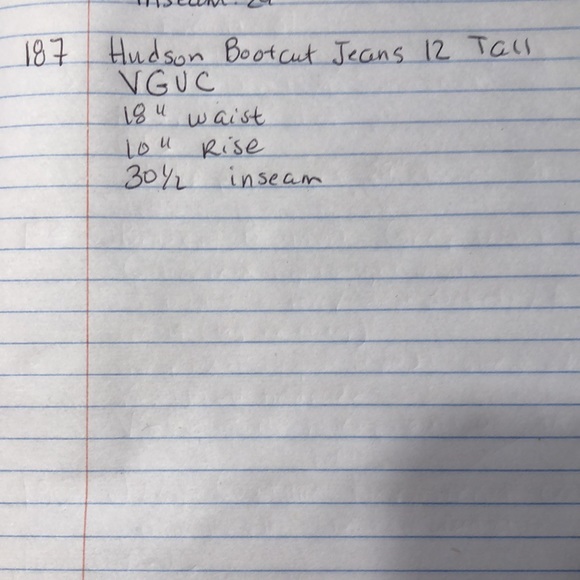 187 Hudson Bootcut Jeans 12 Tall
VGUC
18" waist
10" Rise
30½ inseam